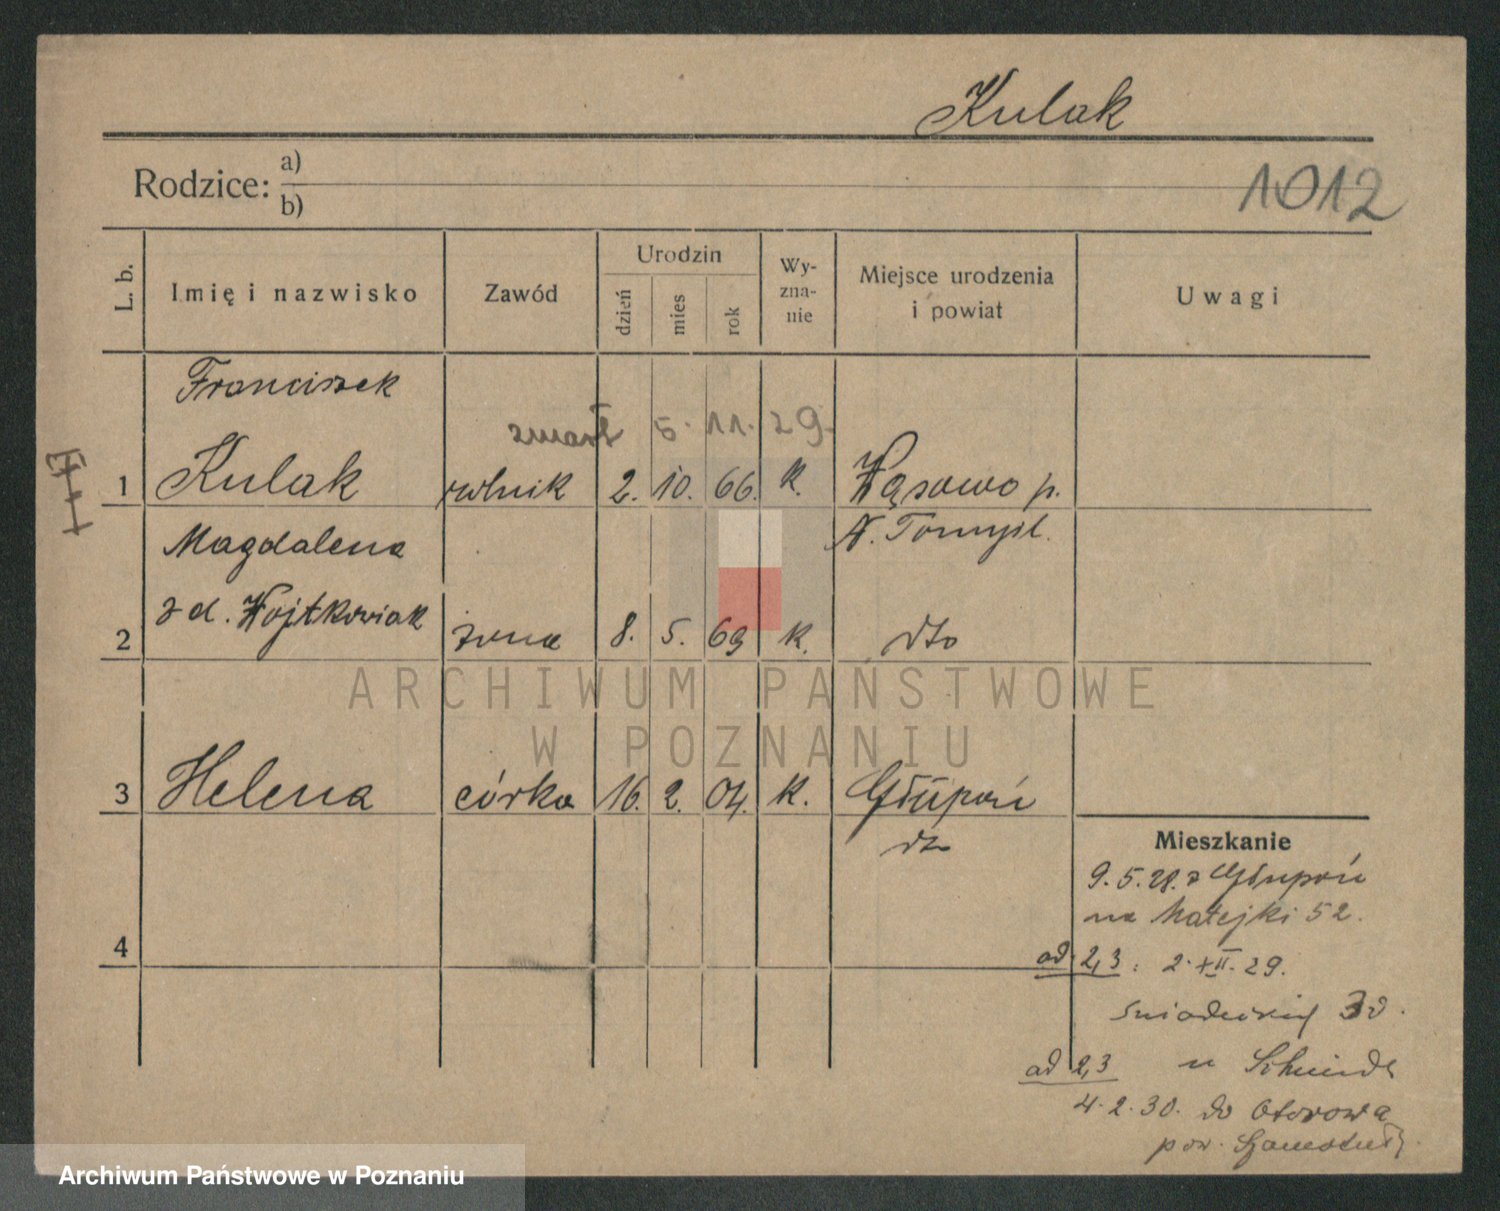 Kulak
Rodzice: a)
b)
1012
L. b.
Imię i nazwisko
Zawód
Urodzin
dzień
mies
rok
Wy-
zna-
nie
Miejsce urodzenia
i powiat
Uwagi
Franciszek
zmarł 5. 11. 29.
1 Kulak rolnik 2. 10. 66. k. Wąsowo p.
N. Tomyśl.
Magdalena
2 z d. Wojtkowiak żona 8. 5. 69 k. dto
3 Helena córka 16. 2. 04. k. Głupoń
dto
4
Mieszkanie
9.5.28. z Głupoń
na Matejki 52.
ad 2,3: 2.XII.29.
Śniadeckich
ad 2,3 u Schmidt
4.2.30. do Otorowa
pow. Szamotuły.
ARCHIWUM PAŃSTWOWE
W POZNANIU
Archiwum Państwowe w Poznaniu